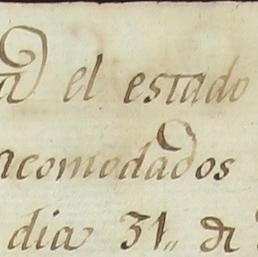 a el estado
acomodados
dia 31,, de